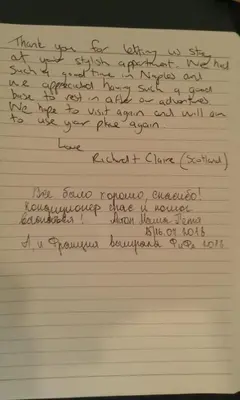 Thank you for letting us stay
at your stylish appartment. We had
such a good time in Naples and
we appreciated having such a good
base to rest in after our adventures.
We hope to visit again and will aim
to use your place again.
Love
Richard + Claire (Scotland)
Все было хорошо, спасибо!
Кондиционер спас и помог
! Маша Петя
07.2018
А, и Франция выиграла ФиФа 2018